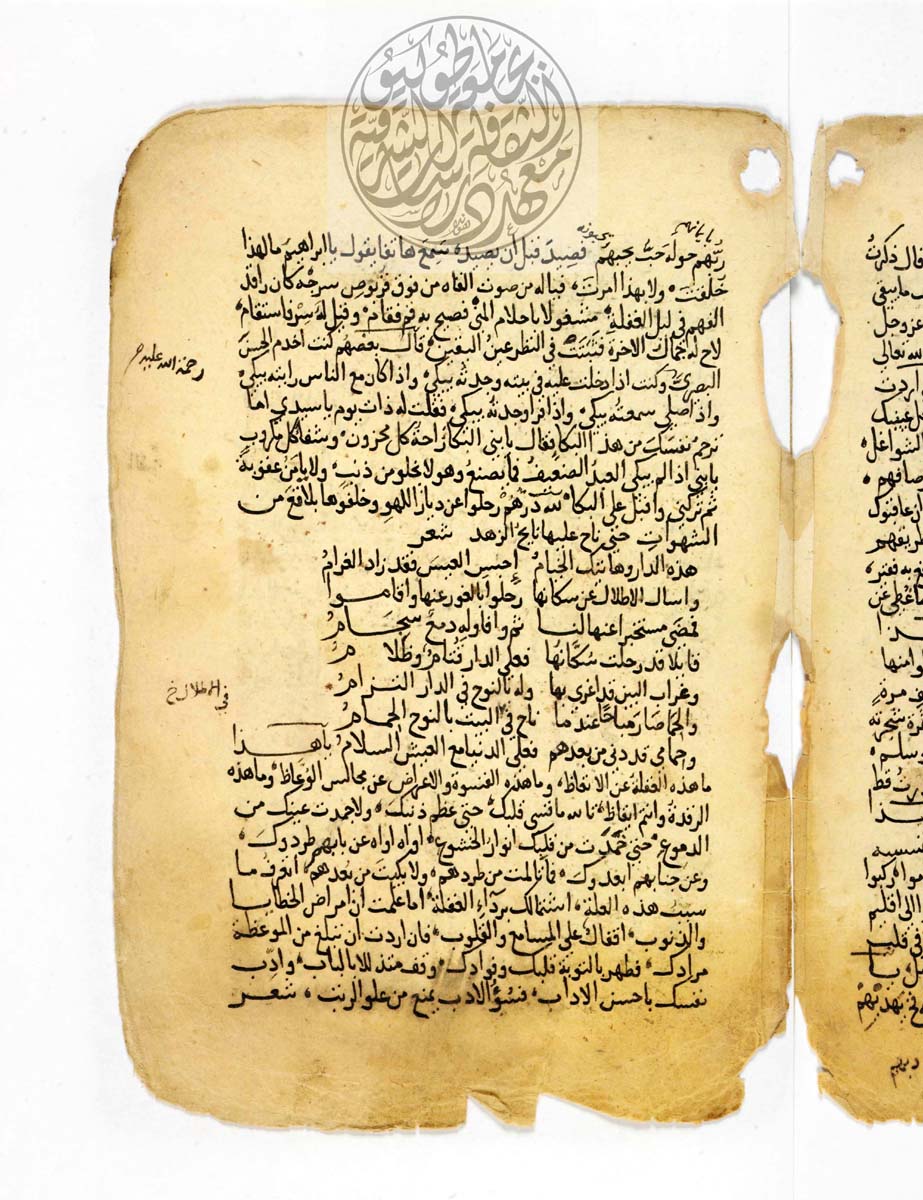 ربهم حوله حب يحبهم فصيد قبل أن يصيد سمع هاتفا يقول يا ابراهيم ما لهذا
خلقت ولا بهذا امرت فياله من صوت القاه من فوق قربوص سرجه كان راقد
الفهم في ليل الغفلة مشغولا باحلام المنى فصيح به قم فقام وقيل له سر فاستقام
لاح له جمال الاخرة في النظر عين اليقين قال بعضهم كنت اخدم الحسن
البصري وكنت اذا دخلت عليه في بيته وجدته يبكي واذا كان مع الناس رايته يبكي
واذا صلى سمعته يبكي واذا قرا وجدته يبكي فقلت له ذات يوم يا سيدي اما
ترحم نفسك من هذا البكا فقال يا بني البكا راحة كل محزون وشفا كل مكروب
يا بني اذا لم يبكي العبد الضعيف فما يصنع وهو لا يخلو من ذنب ولا يامن عقوبة
ثم تركني واقبل على البكا لله درهم رحلوا عن ديار اللهو وخلفوها بلاقع من
الشهوات حتى ناح عليها نايح الزهد شعر
هذه الدار وهاتيك الخيام احبس العيس فقد زاد الغرام
واسال الاطلال عن سكانها رحلوا بالغور عنها واقاموا
فمضى مستخبرا عنها لنا ثم وافا وله دمع سجام
قايلا قد رحلت سكانها فعلى الدار قتام وظلام
وغراب البين قد اغري بها وله بالنوح في الدار التزام
والحما صار مباحا عند ما ناح في البيت بالنوح الحمام
وحمامي قد دنى من بعدهم فعلى الدنيا مع العيش السلام يا هذا
ما هذه الغفلة عن الاتعاظ وما هذه القسوة والاعراض عن مجالس الوعاظ وما هذه
الرقدة وانتم ايقاظ تا لله ما قسى قلبك حتى عظم ذنبك ولا جمدت عينك من
الدموع حتى خمدت من قلبك انوار الخشوع اواه اواه عن بابهم طردوك
وعن جنابهم ابعدوك فما تالمت من طردهم ولا بكيت من بعدهم اتعرف ما
سبب هذه العلة اشتمالك برداء الغفلة اما علمت ان امراض الخطايا
والذنوب اقفال على المسامع والقلوب فان اردت ان تبلغ من الموعظة
مرادك فطهر بالتوبة قلبك وفوادك وقف متذللا بالباب وادب
نفسك باحسن الاداب فسوء الادب يمنع من علو الرتب شعر
رحمة الله عليه
في الاطلال خ
معهد الثقافة والدراسات الشرقية